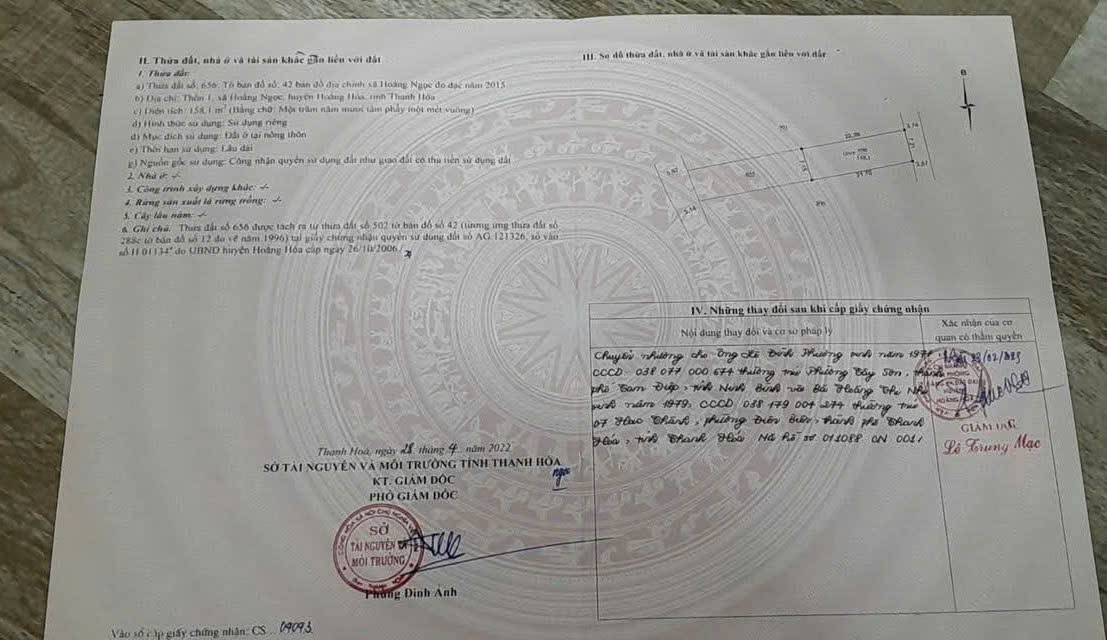 II. Thửa đất, nhà ở và tài sản khác gắn liền với đất
1. Thửa đất:
a) Thửa đất số: 656. Tờ bản đồ số: 42 bản đồ địa chính xã Hoằng Ngọc đo đạc năm 2015.
b) Địa chỉ: Thôn 1, xã Hoằng Ngọc, huyện Hoằng Hóa, tỉnh Thanh Hóa
c) Diện tích: 158,1 m² (Bằng chữ: Một trăm năm mươi tám phẩy một mét vuông)
d) Hình thức sử dụng: Sử dụng riêng
đ) Mục đích sử dụng: Đất ở tại nông thôn
e) Thời hạn sử dụng: Lâu dài
g) Nguồn gốc sử dụng: Công nhận quyền sử dụng đất như giao đất có thu tiền sử dụng đất
2. Nhà ở: -/-
3. Công trình xây dựng khác: -/-
4. Rừng sản xuất là rừng trồng: -/-
5. Cây lâu năm: -/-
6. Ghi chú: Thửa đất số 656 được tách ra từ thửa đất số 502 tờ bản đồ số 42 (tương ứng thửa đất số
288c tờ bản đồ số 12 đo vẽ năm 1996) tại giấy chứng nhận quyền sử dụng đất số AG 121326, số vào
số H 01134 do UBND huyện Hoằng Hóa cấp ngày 26/10/2006./.
Thanh Hoá, ngày 28 tháng 4 năm 2022
SỞ TÀI NGUYÊN VÀ MÔI TRƯỜNG TỈNH THANH HÓA
KT. GIÁM ĐỐC
PHÓ GIÁM ĐỐC
SỞ
TÀI NGUYÊN VÀ
MÔI TRƯỜNG
Phùng Đình Ảnh
Vào sổ cấp giấy chứng nhận: CS 09093
III. Sơ đồ thửa đất, nhà ở và tài sản khác gắn liền với đất
B
5.14
158.1
IV. Những thay đổi sau khi cấp giấy chứng nhận
Nội dung thay đổi và cơ sở pháp lý
Xác nhận của cơ
quan có thẩm quyền
Chuyển nhượng cho Ông Lê Đình Phương sinh năm 1977
CCCD: 038 077 000 674 thường trú Phường Tây Sơn, thành
phố Tam Điệp, tỉnh Ninh Bình và Bà Hoàng Thị
sinh năm 1979, CCCD 038 179 004 274 thường trú
07 Hạc Thành, phường Điện Biên, thành phố Thanh
Hóa, tỉnh Thanh Hóa Mã hồ sơ 011088 CN 001/
GIÁM ĐỐC
Lê Trung Mạc